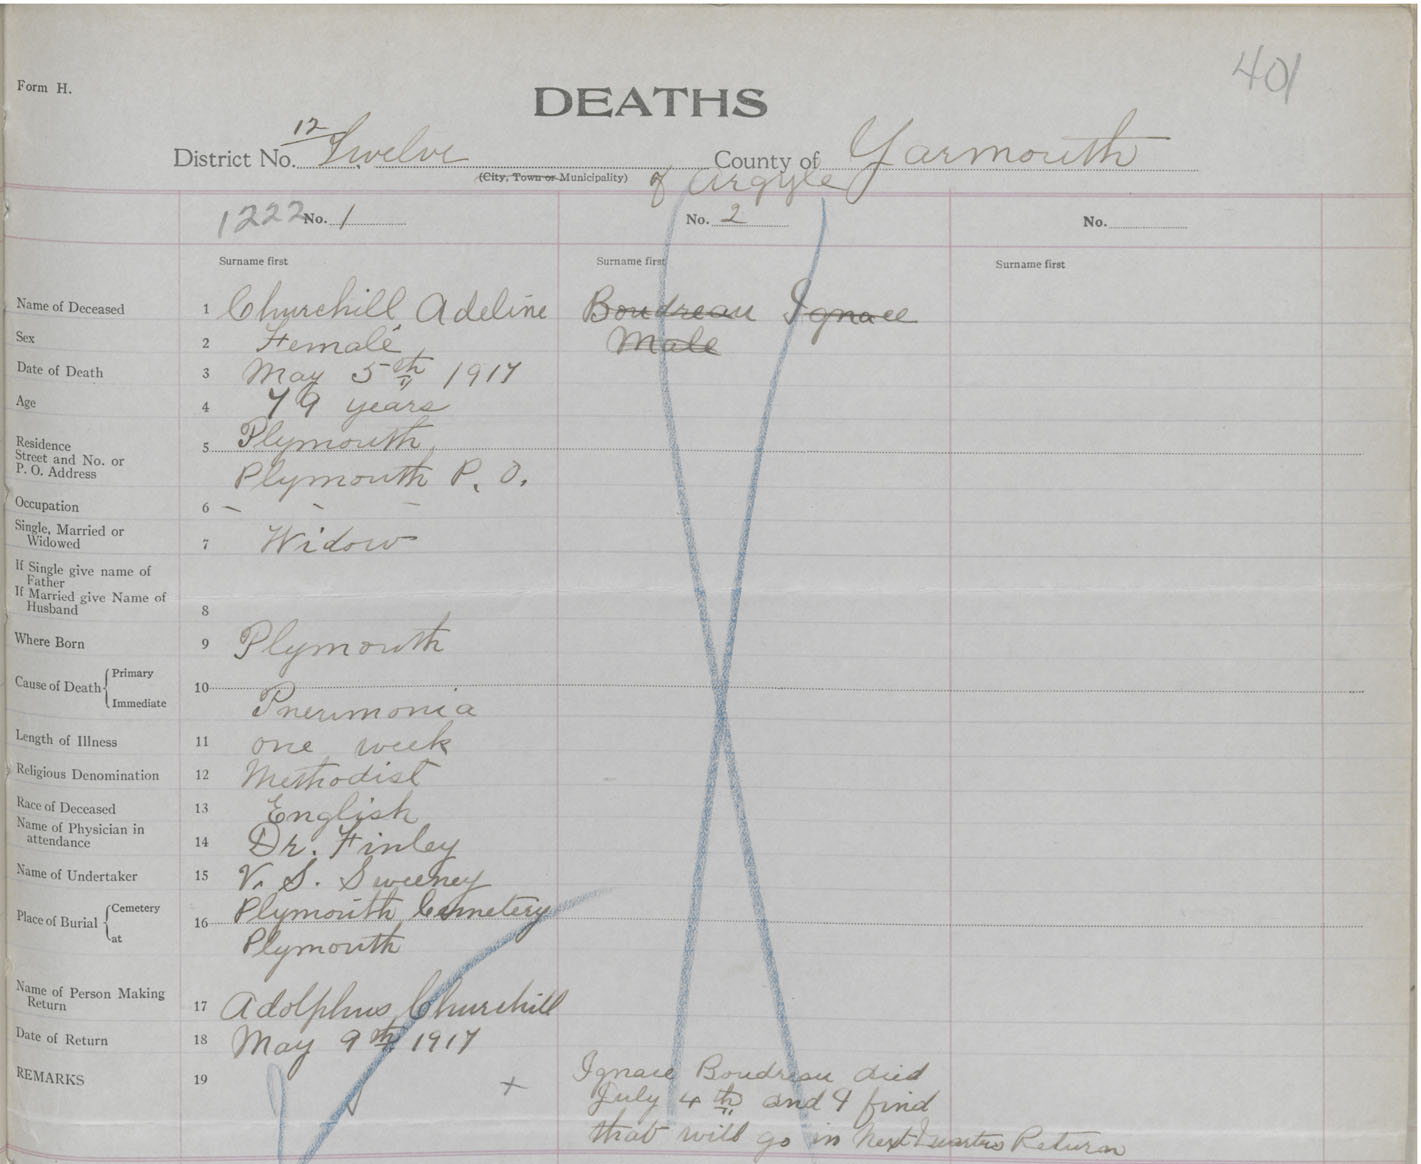 401
Form H.
DEATHS
12
District No. Twelve County of Yarmouth
(City, Town or Municipality) of Argyle
1222 No. 1 No. 2 No.
Surname first Surname first Surname first
Name of Deceased 1 Churchill Adeline Boudreau Ignace
Sex 2 Female Male
Date of Death 3 May 5th 1917
Age 4 79 years
Residence
Street and No. or
P. O. Address
5 Plymouth
Plymouth P. O.
Occupation 6 - - -
Single, Married or
Widowed
7 Widow
If Single give name of
Father
If Married give Name of
Husband
8
Where Born 9 Plymouth
Cause of Death Primary
Immediate
10
Pneumonia
Length of Illness 11 one week
Religious Denomination 12 Methodist
Race of Deceased 13 English
Name of Physician in
attendance
14 Dr. Finley
Name of Undertaker 15 V. S. Sweeney
Place of Burial Cemetery
at
16 Plymouth Cemetery
Plymouth
Name of Person Making
Return
17 Adolphus Churchill
Date of Return 18 May 9th 1917
REMARKS 19 + Ignace Boudreau died
July 4th and I find
that will go in Next Quarters Return